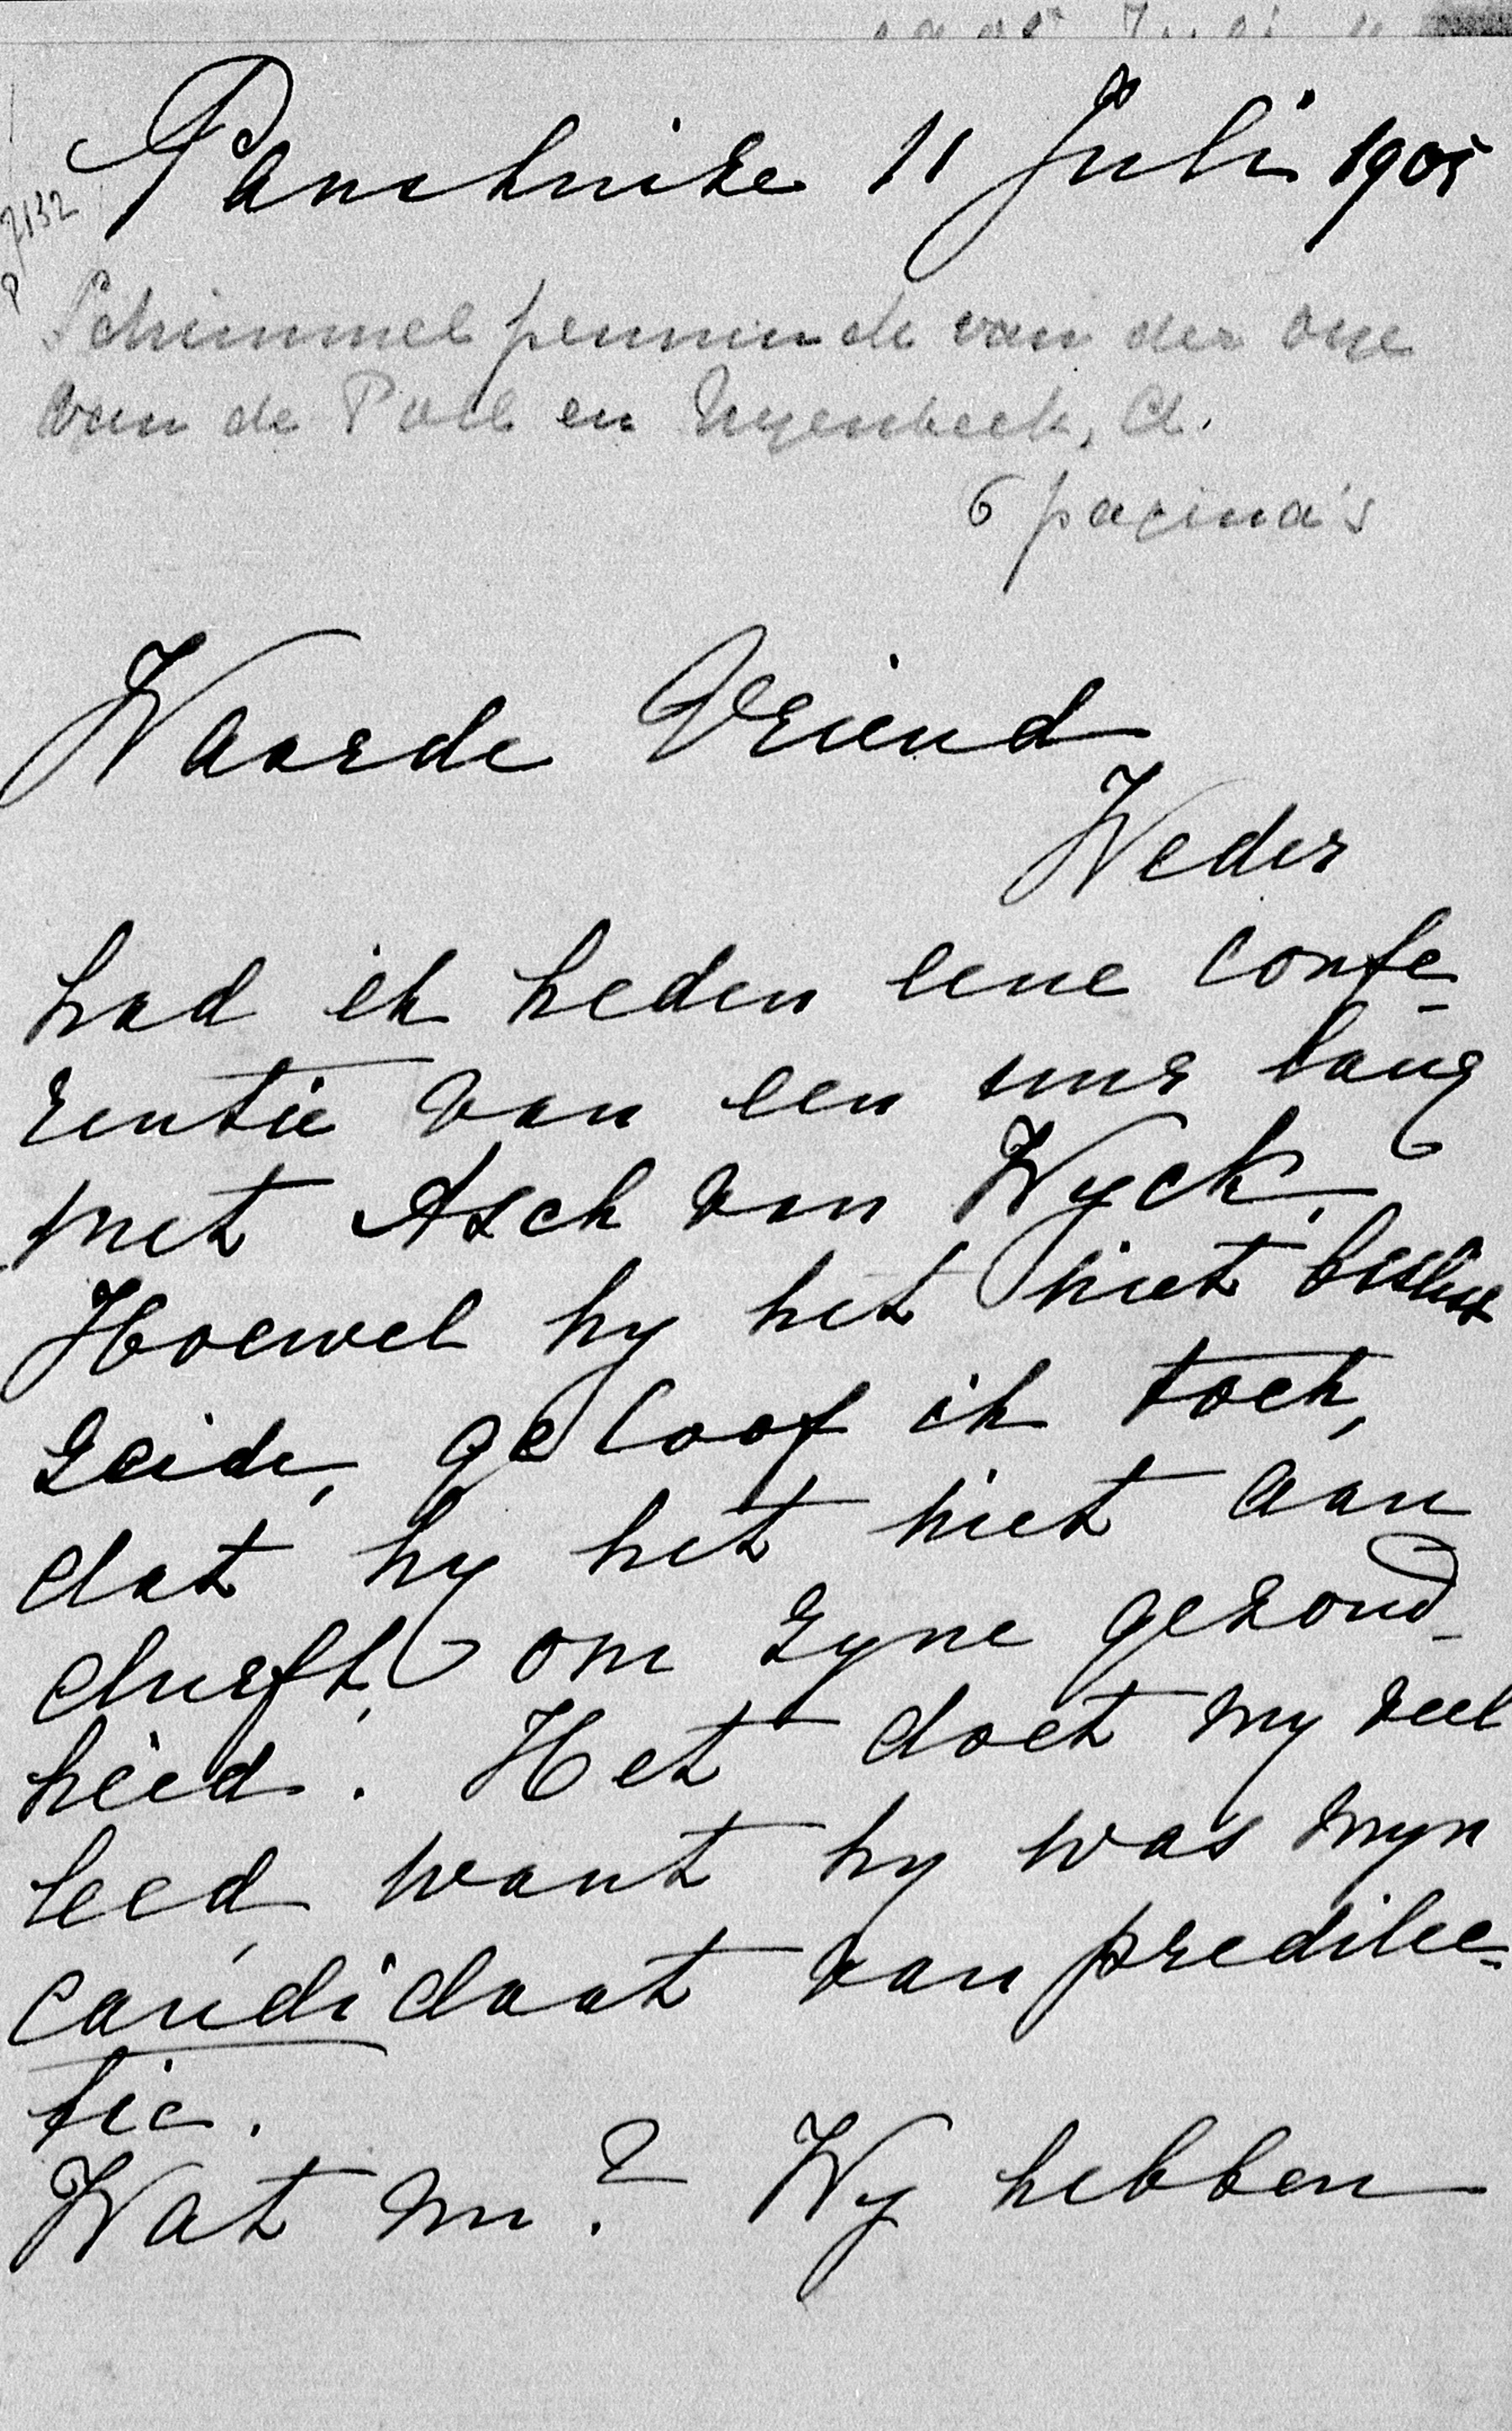 Panthuize 11 Juli 1901
P 7132
Schimmelpenninck van der Oye
van de Poll en Nyenbeek, A.
6 pagina's
Waarde Vriend
Weder
had ik heden eene confe-
rentie van een uur lang
met Asch van Wyck.
Hoewel hy het niet beslist
zeide, geloof ik toch,
dat hy het niet aan
durft, om zyne gezond-
heid. Het doet my veel
leed, want hy was myn
candidaat van predilec-
tie.
Wat nu? Wy hebben